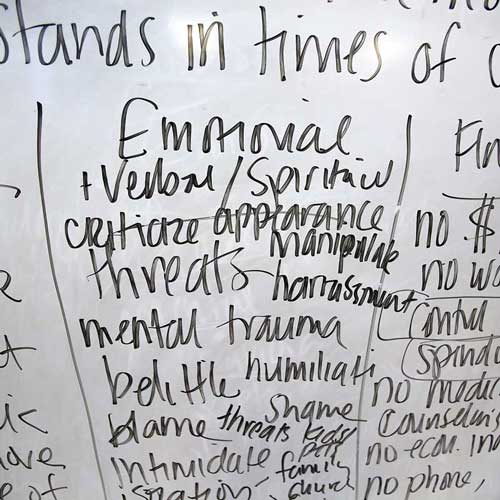 stands in times of
Emotional
+ Verbal / Spiritual
criticize appearance
manipulate
threats
harrassment
mental trauma
belittle humiliati
shame
blame threats kids
pets
intimidate family
church
no $
no wo
control
spendi
no medic
Counseling
no econ. in
no phone,